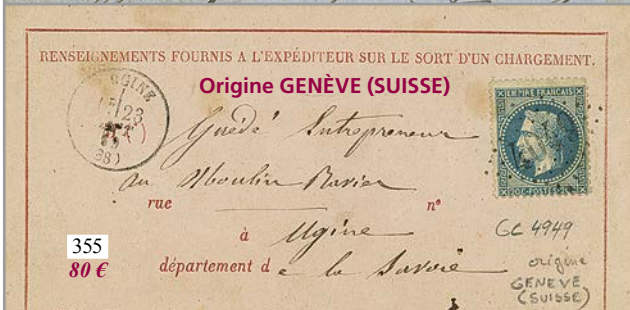 RENSEIGNEMENTS FOURNIS A L'EXPÉDITEUR SUR LE SORT D'UN CHARGEMENT.
Origine GENÈVE (SUISSE)
UGINE
23
(88)
EMPIRE FRANÇAIS
20C POSTES 20C
Guédé Entrepreneur
au Moulin Ravier
rue n°
à Ugine
département de la Savoie
GC 4949
origine
GENEVE
(SUISSE)
355
80 €